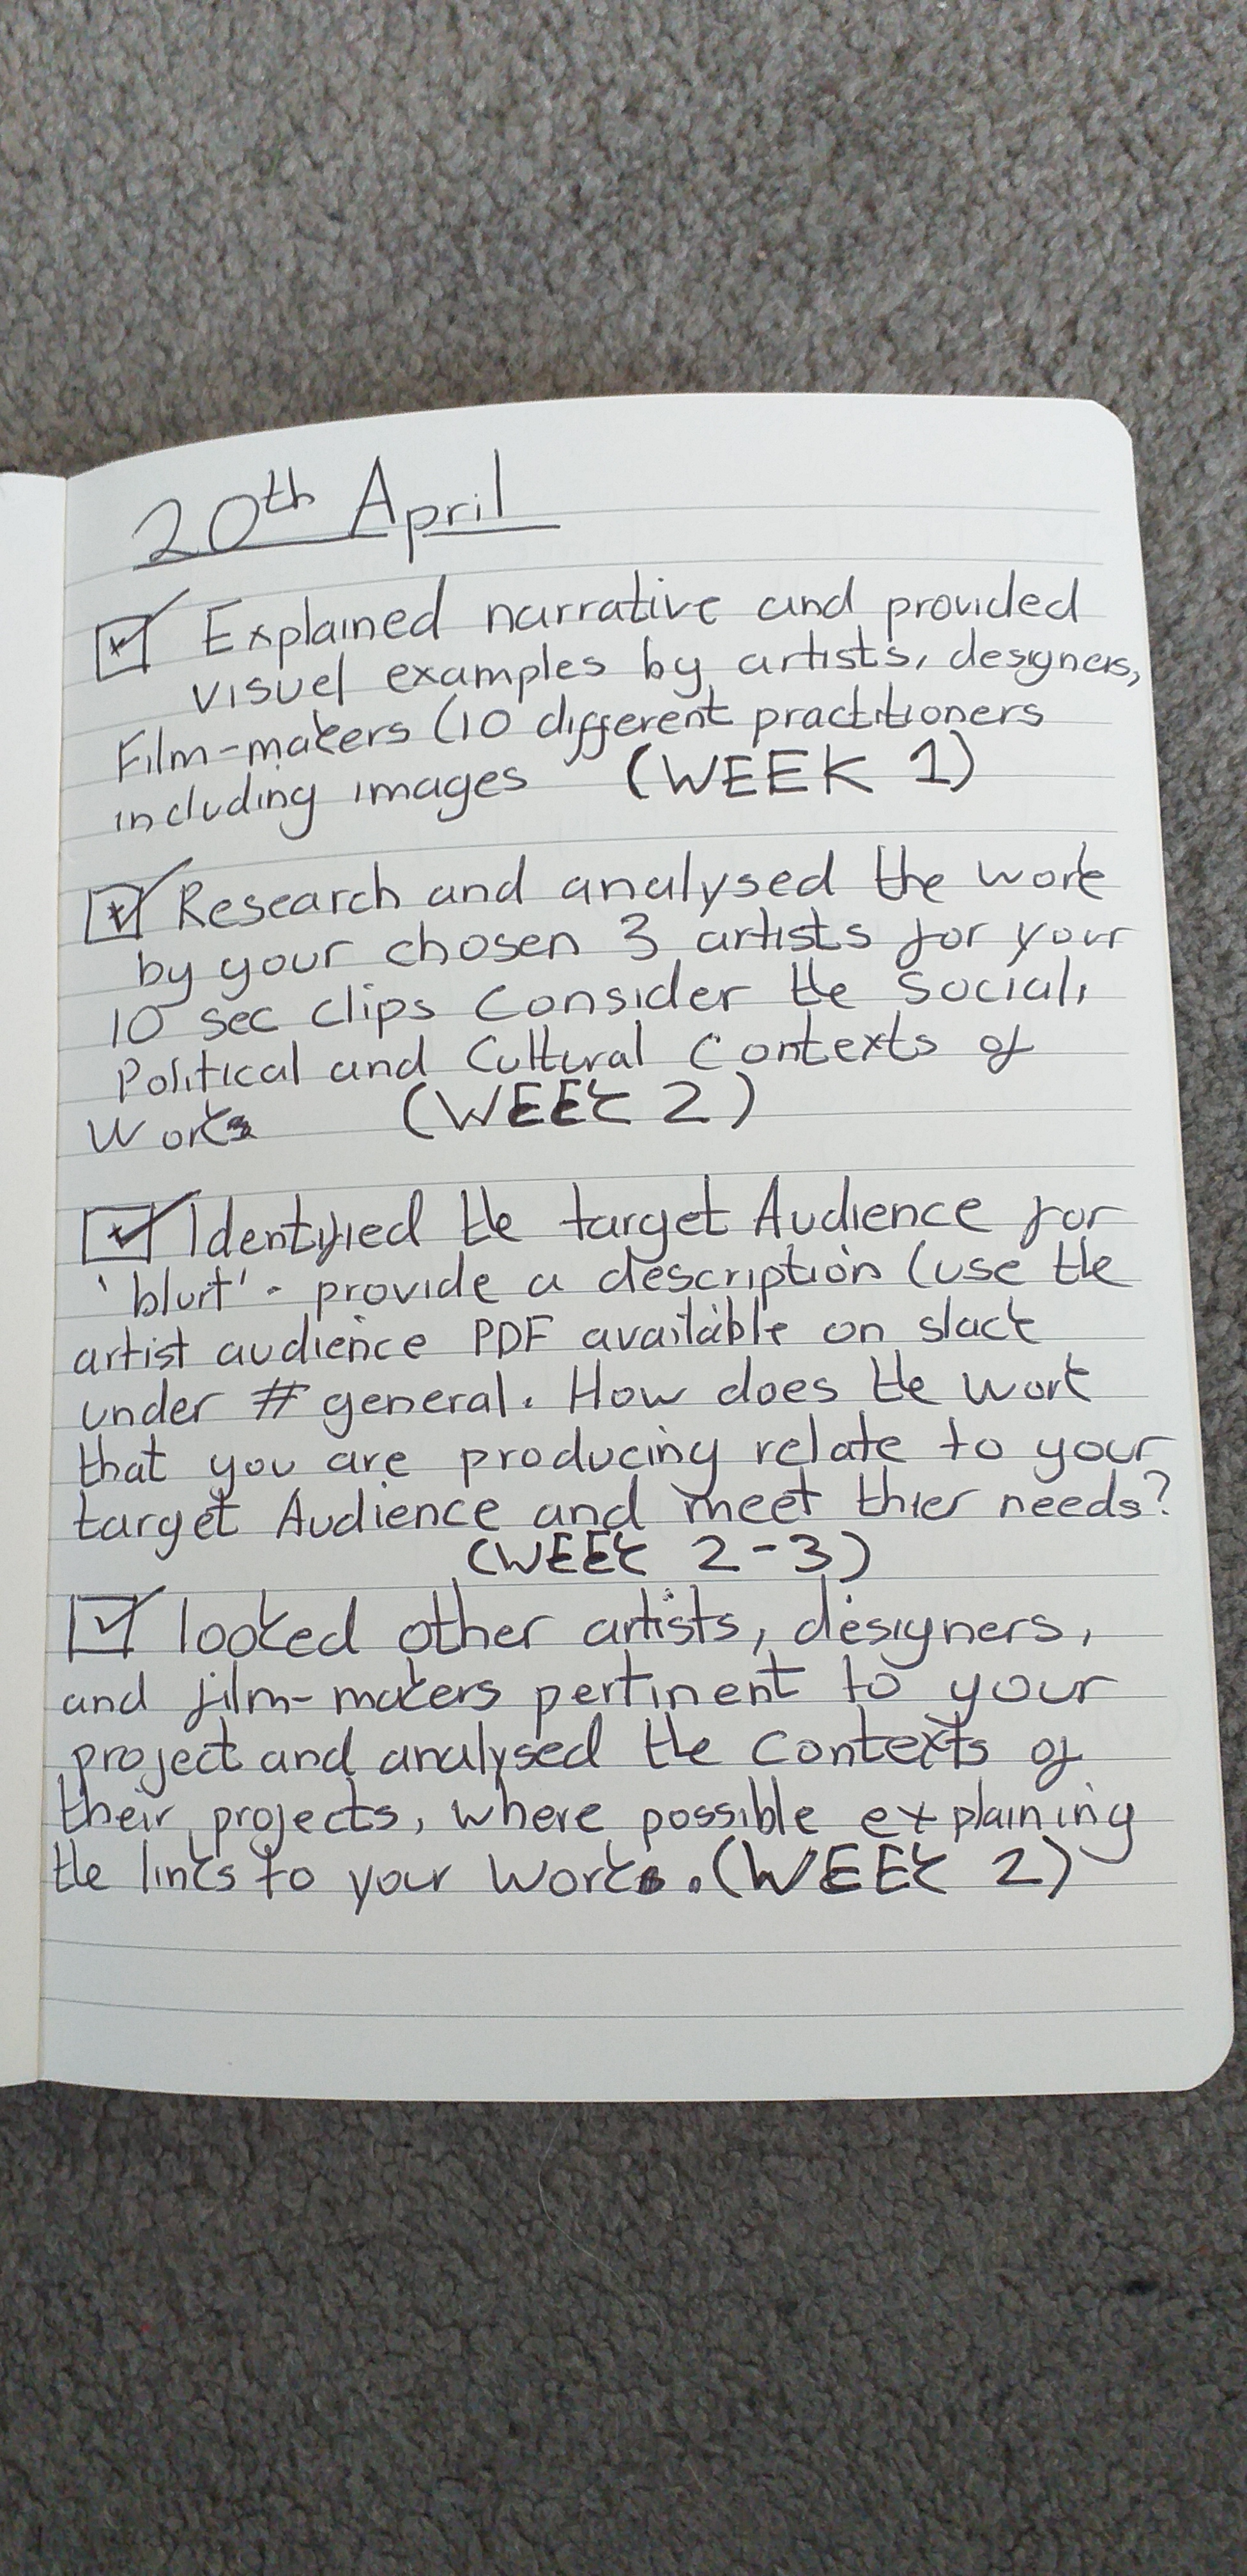 20th April
☑ Explained narrative and provided
visuel examples by artists, designers,
Film-makers (10 different practitioners
including images (WEEK 1)
☑ Research and analysed the work
by your chosen 3 artists for your
10 sec clips Consider the Social,
Political and Cultural Contexts of
Works (WEEK 2)
☑ Identified the target Audience for
'blurt' - provide a description (use the
artist audience PDF available on slack
under # general. How does the work
that you are producing relate to your
target Audience and meet thier needs?
(WEEK 2-3)
☑ looked other artists, designers,
and film-makers pertinent to your
project and analysed the Contexts of
their projects, where possible explaining
the links to your Works. (WEEK 2)